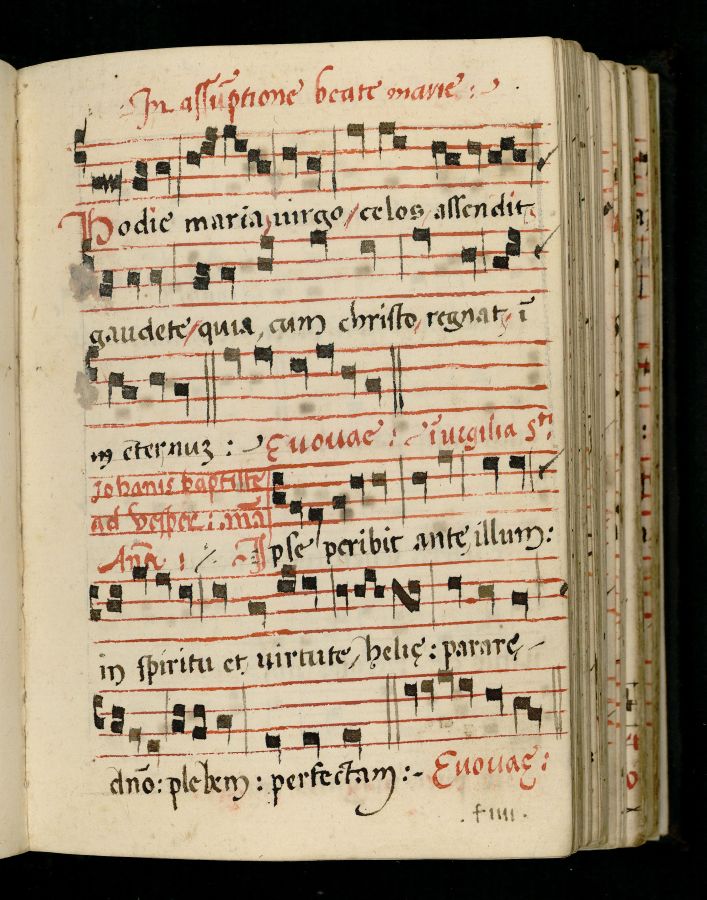 In assūptione beate marie :
Hodie maria, uirgo / celos, assendit,
gaudete / quia, cum christo, regnat, ī
in eternuʒ : Euouae : ī uigilia Sti
iohanis baptiste
ad vesper : mā
Anā : Ipse peribit ante, illum :
in spiritu et, uirtute, helię : pararę
dnō : plebem : perfectam : - Euouaę :
. f iiii .